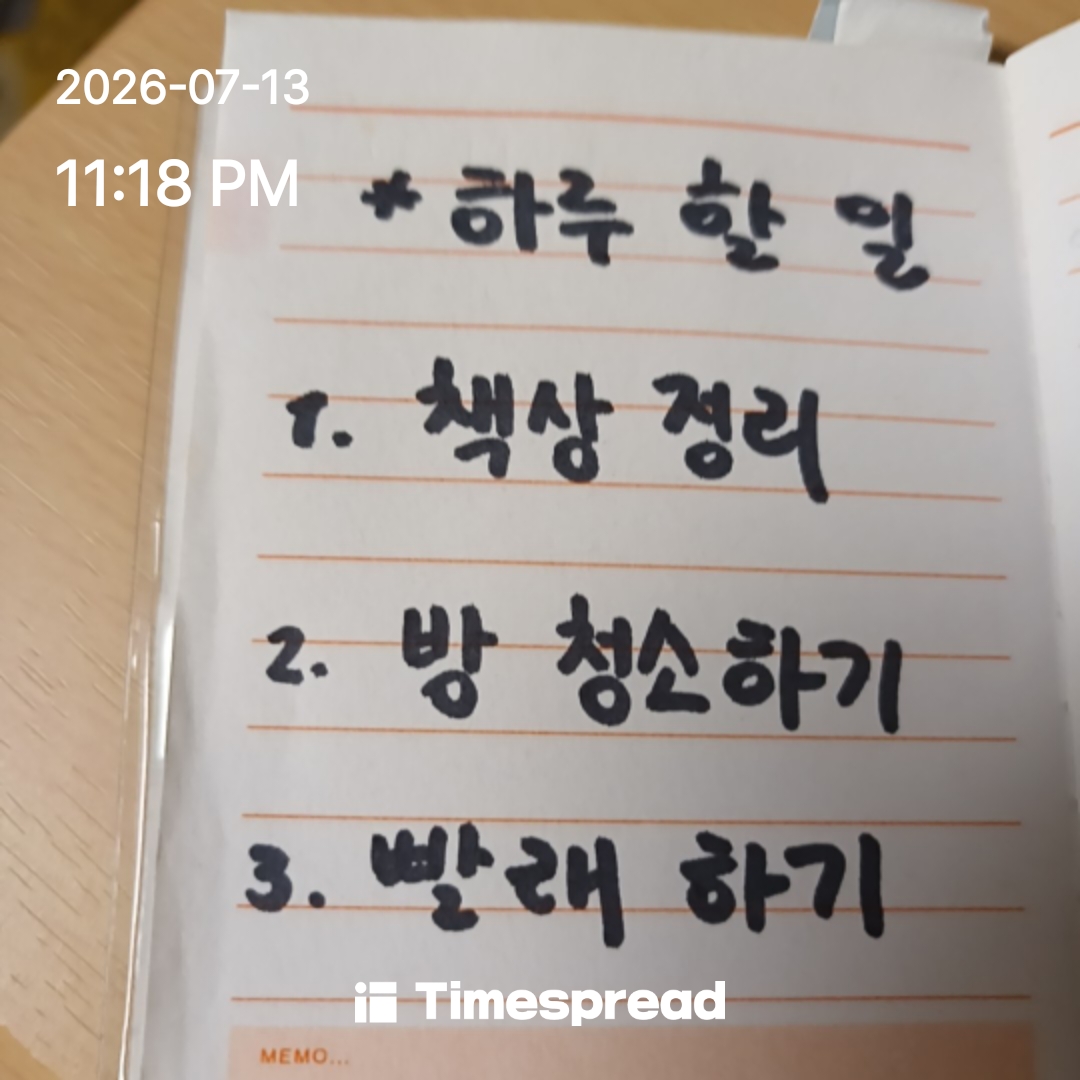 2026-07-13
11:18 PM
* 하루 할 일
1. 책상 정리
2. 방 청소하기
3. 빨래 하기
Timespread
MEMO...